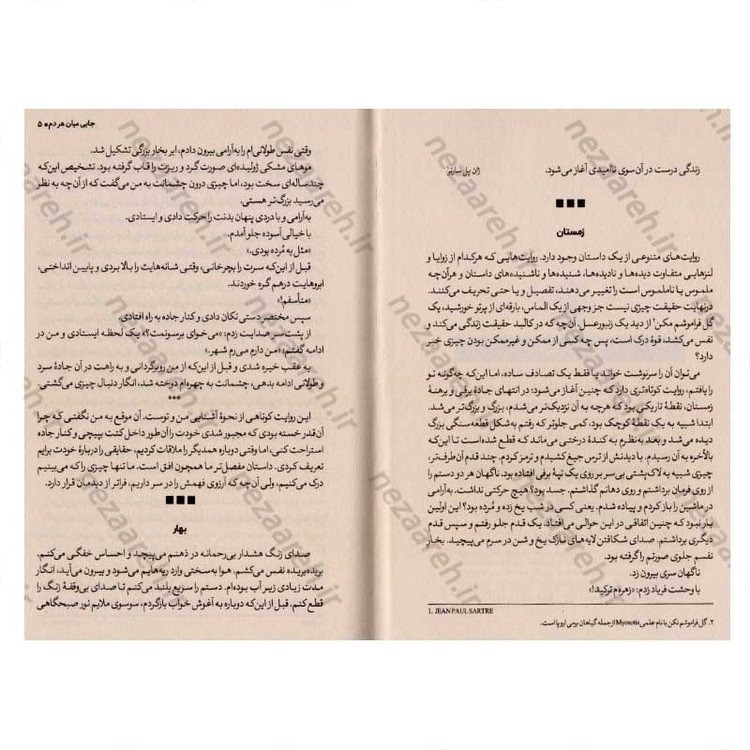 زندگی درست در آن سوی ناامیدی آغاز می‌شود.
ژان پل سارتر¹
زمستان
روایت‌های متنوعی از یک داستان وجود دارد. روایت‌هایی که هرکدام از زوایا و
لنزهایی متفاوت دیده‌ها و نادیده‌ها، شنیده‌ها و ناشنیده‌های داستان و هرآن‌چه
ملموس یا ناملموس است را تغییر می‌دهند، تفصیل و یا حتی تحریف می‌کنند.
درنهایت حقیقت چیزی نیست جز وجهی از یک الماس، بارقه‌ای از پرتو خورشید، یک
گل فراموشم مکن² از دید یک زنبورعسل. آن چه که در کالبد حقیقت زندگی می‌کند و
نفس می‌کشد، قوهٔ درک است؛ پس چه کسی از ممکن و غیرممکن بودن چیزی خبر
دارد؟
می‌توان آن را سرنوشت خواند یا فقط یک تصادف ساده، اما این‌که چه‌گونه تو
را یافتم، روایت کوتاه‌تری دارد که چنین آغاز می‌شود: در انتهای جادهٔ برفی و برهنهٔ
زمستان، نقطهٔ تاریکی بود که هرچه به آن نزدیک‌تر می‌شدم، بزرگ و بزرگ‌تر می‌شد.
ابتدا شبیه به یک نقطهٔ کوچک بود، کمی جلوتر که رفتم به‌شکل قطعه‌سنگی بزرگ
دیده می‌شد و بعد به‌نظرم به کندهٔ درختی می‌ماند که قطع شده است تا این‌که
بالأخره به آن رسیدم. با دیدنش از ترس جیغ کشیدم و ترمز کردم. چند قدم آن‌طرف‌تر،
چیزی شبیه به لاک‌پشتی بی‌سر بر روی یک تپهٔ برفی افتاده بود. ناگهان هر دو دستم را
از روی فرمان برداشتم و روی دهانم گذاشتم. جسد بود؟ هیچ حرکتی نداشت. به‌آرامی
در ماشین را باز کردم و پیاده شدم. یعنی کسی در شب یخ زده و مُرده بود؟ این اولین
بار نبود که چنین اتفاقی در این حوالی می‌افتاد. یک قدم جلو رفتم و سپس قدم
دیگری برداشتم. صدای شکافتن لایه‌های نازک یخ و شن در سرم می‌پیچید. بخار
نفسم جلوی صورتم را گرفته بود.
ناگهان سری بیرون زد.
با وحشت فریاد زدم: «زهره‌م ترکید!»
1. JEAN PAUL SARTRE
۲. گل فراموشم نکن با نام علمی Myosotis از جمله گیاهان بومی اروپا است.
جایی میان هر دم ■ ۵
وقتی نفس طولانی‌ام را به‌آرامی بیرون دادم، ابر بخار بزرگی تشکیل شد.
موهای مشکی ژولیده‌ای صورت گرد و ریزت را قاب گرفته بود. تشخیص این‌که
چندساله‌ای سخت بود، اما چیزی درون چشمانت به من می‌گفت که از آن‌چه به نظر
می‌رسید بزرگ‌تر هستی.
به‌آرامی و با دردی پنهان بدنت را حرکت دادی و ایستادی.
با خیالی آسوده جلو آمدم.
«مثل یه مُرده بودی.»
قبل از این‌که سرت را بچرخانی، وقتی شانه‌هایت را بالا بردی و پایین انداختی،
ابروهایت درهم گره خوردند.
«متأسفم!»
سپس مختصر دستی تکان دادی و کنار جاده به راه افتادی.
از پشت سر صدایت زدم: «می‌خوای برسونمت؟» یک لحظه ایستادی و من در
ادامه گفتم: «من دارم می‌رم شهر.»
به عقب خیره شدی و قبل از این‌که از من روبرگردانی و به راهت در آن جادهٔ سرد
و طولانی ادامه بدهی، چشمانت به چهره‌ام دوخته شد، انگار دنبال چیزی می‌گشتی.
***
این روایت کوتاهی از نحوهٔ آشنایی من و توست. آن موقع به من نگفتی که چرا
آن‌قدر خسته بودی که مجبور شدی خودت را آن‌طور داخل کتت بپیچی و کنار جاده
استراحت کنی، اما وقتی دوباره همدیگر را ملاقات کردیم، حقایقی را دربارهٔ خودت برایم
تعریف کردی. داستان مفصل‌تر ما همچون افق است. ما تنها چیزی را که می‌بینیم
درک می‌کنیم، ولی آن‌چه که آرزوی فهمش را در سر داریم، فراتر از دیدمان قرار دارد.
بهار
صدای زنگ هشدار بی‌رحمانه در ذهنم می‌پیچد و احساس خفگی می‌کنم.
بریده‌بریده نفس می‌کشم. هوا به‌سختی وارد ریه‌هایم می‌شود و بیرون می‌آید، انگار
مدت زیادی زیر آب بوده‌ام. دستم را سریع بلند می‌کنم تا صدای بی‌وقفهٔ زنگ را
قطع کنم. قبل از این‌که دوباره به آغوش خواب بازگردم، سوسوی ملایم نور صبحگاهی
nezaareh.ir